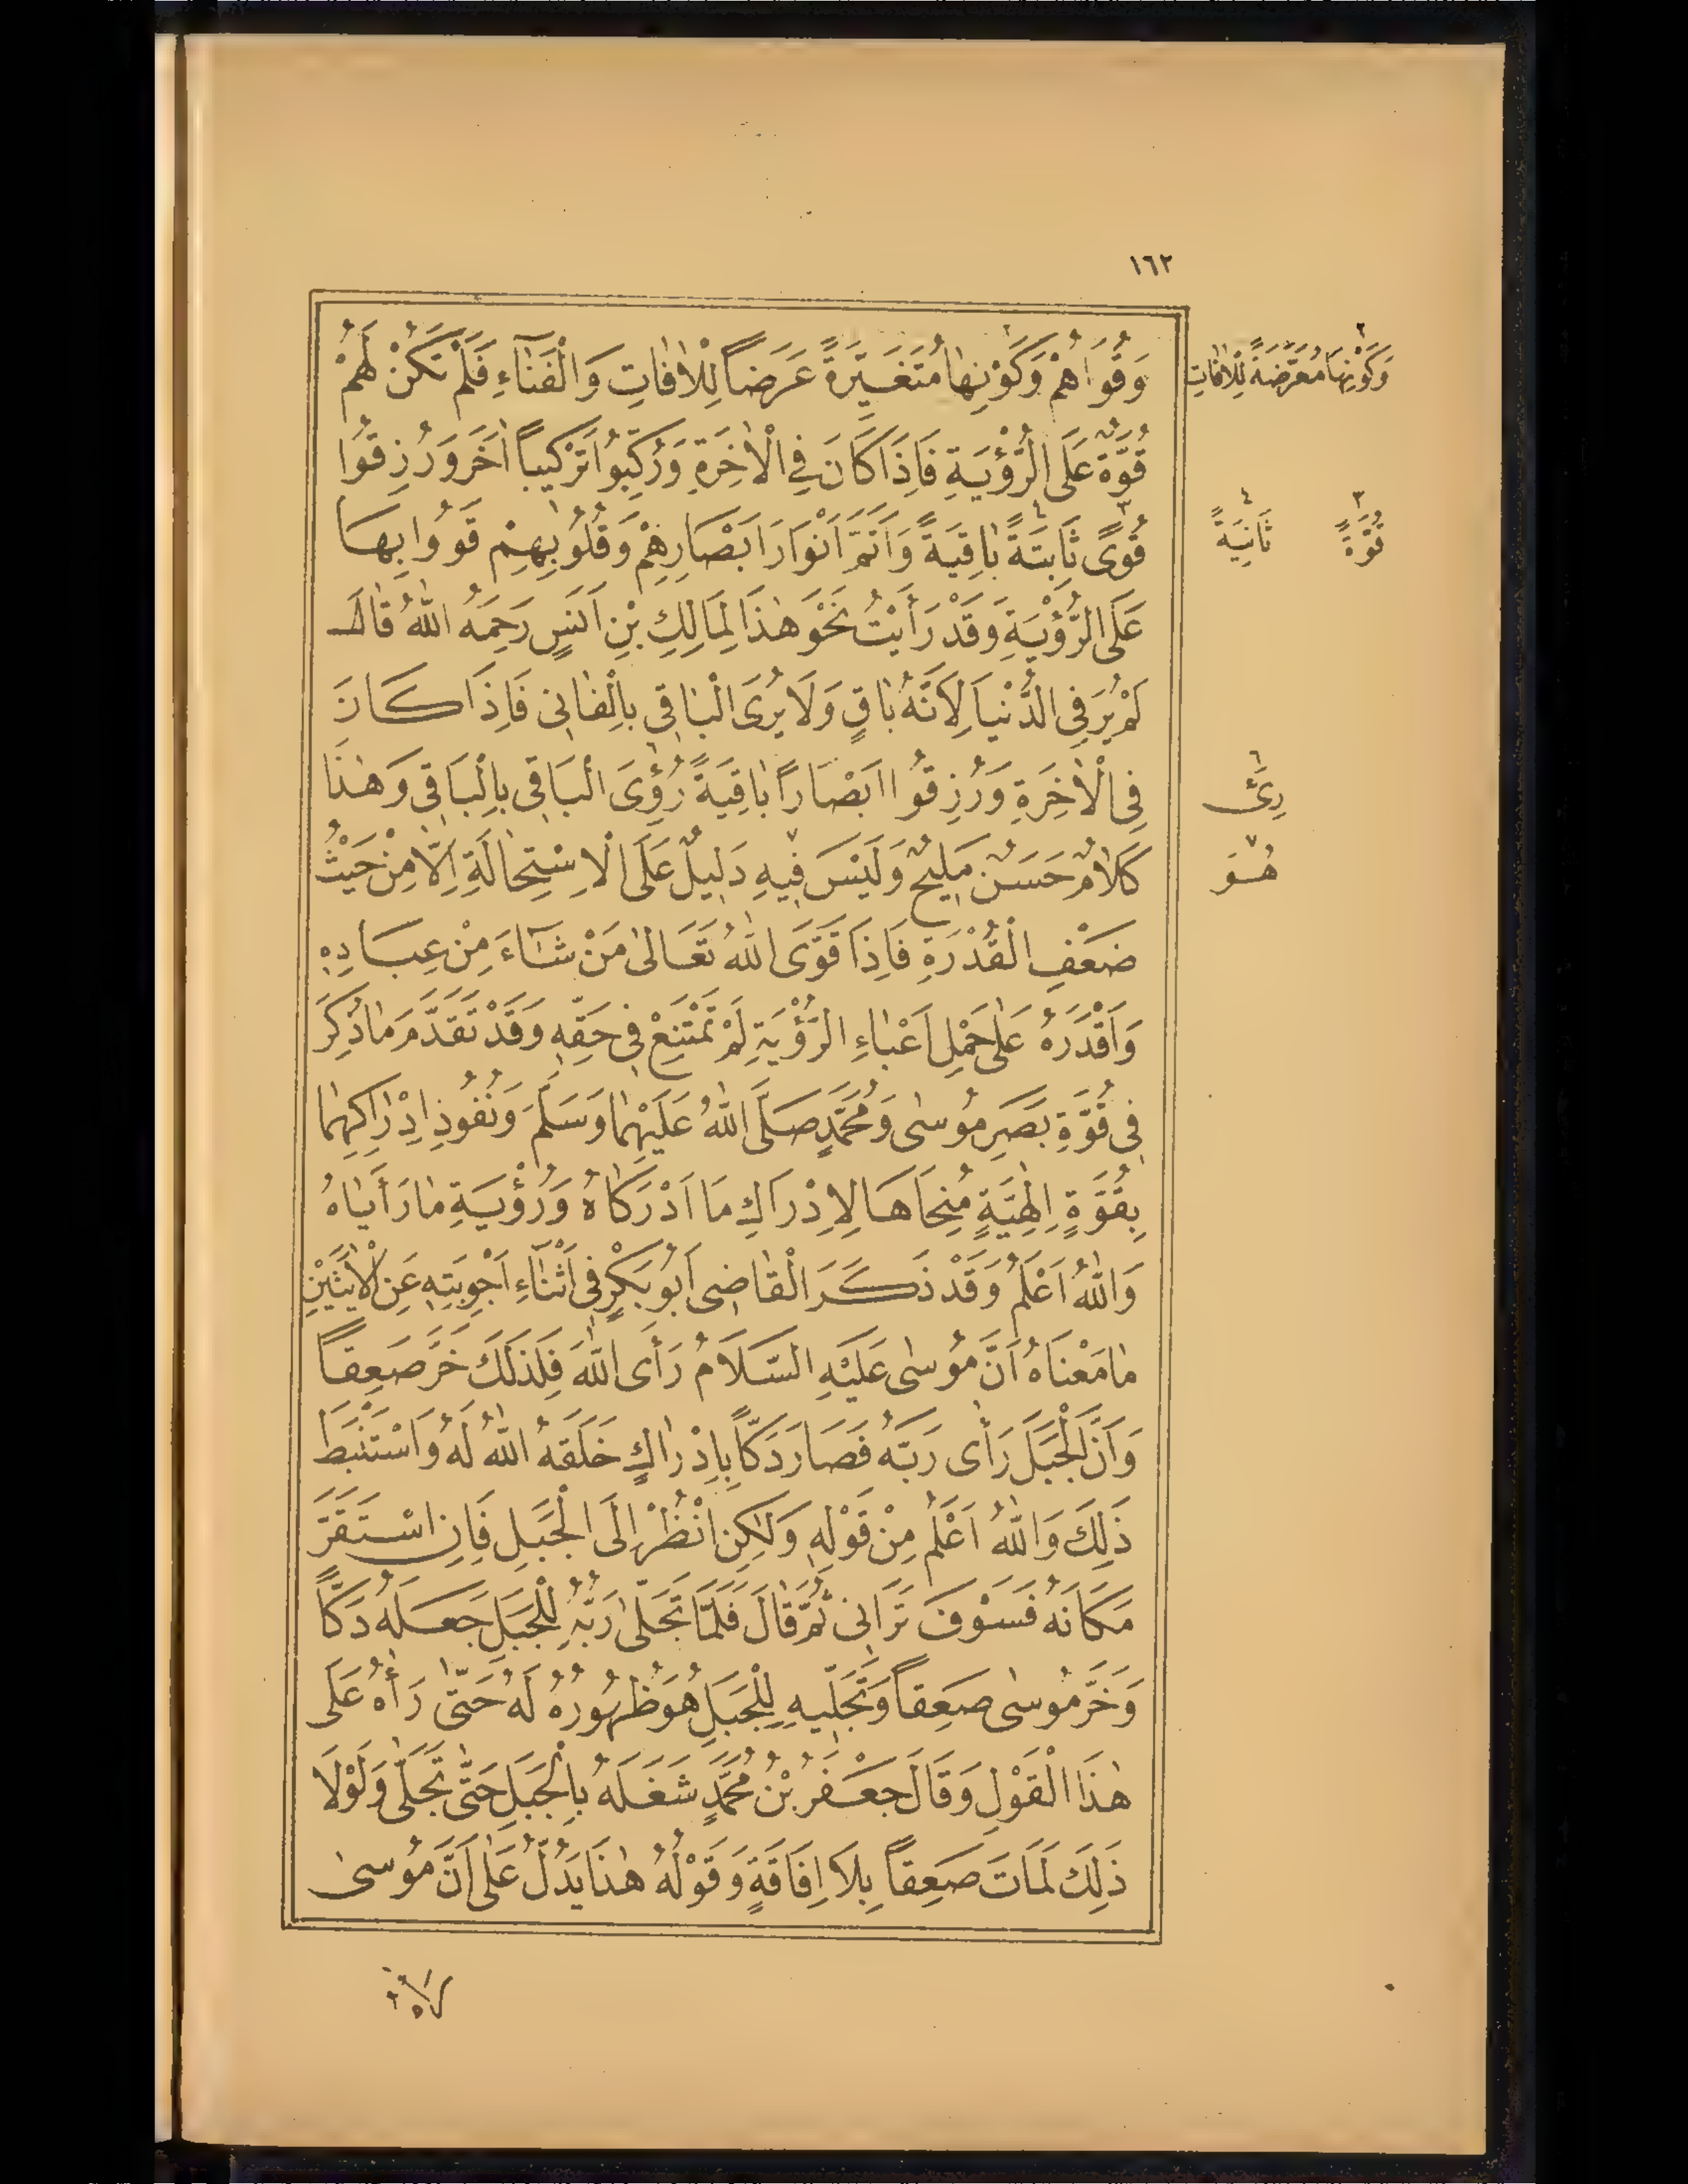 ١٦٢
وَقُوَاهُمْ وَكَوْنِهَا مُتَغَيِّرَةً عَرَضاً لِلْاٰفَاتِ وَالْفَنَاءِ فَلَمْ تَكُنْ لَهُمْ
قُوَّةٌ عَلَى الرُّؤْيَةِ فَاِذَا كَانَ فِي الْاٰخِرَةِ وَرُكِّبُوا تَرْكِيباً اٰخَرَ وَرُزِقُوا
قُوًى ثَابِتَةً بَاقِيَةً وَاَتَمَّ اَنْوَارَ اَبْصَارِهِمْ وَقُلُوبِهِمْ قَوُوا بِهَا
عَلَى الرُّؤْيَةِ وَقَدْ رَأَيْتُ نَحْوَ هٰذَا لِمَالِكِ بْنِ اَنَسٍ رَحِمَهُ اللّٰهُ قَالَ
لَمْ يُرَ فِي الدُّنْيَا لِاَنَّهُ بَاقٍ وَلَا يُرَى الْبَاقِي بِالْفَانِي فَاِذَا كَانَ
فِي الْاٰخِرَةِ وَرُزِقُوا اَبْصَاراً بَاقِيَةً رُؤِىَ الْبَاقِي بِالْبَاقِي وَهٰذَا
كَلَامٌ حَسَنٌ مَلِيحٌ وَلَيْسَ فِيهِ دَلِيلٌ عَلَى الْاِسْتِحَالَةِ اِلَّا مِنْ حَيْثُ
ضَعْفِ الْقُدْرَةِ فَاِذَا قَوَّى اللّٰهُ تَعَالىٰ مَنْ شَاءَ مِنْ عِبَادِهِ
وَاَقْدَرَهُ عَلَى حَمْلِ اَعْبَاءِ الرُّؤْيَةِ لَمْ تَمْتَنِعْ فِي حَقِّهِ وَقَدْ تَقَدَّمَ مَا ذُكِرَ
فِي قُوَّةِ بَصَرِ مُوسٰى وَمُحَمَّدٍ صَلَّى اللّٰهُ عَلَيْهِمَا وَسَلَّمَ وَنُفُوذِ اِدْرَاكِهِمَا
بِقُوَّةٍ اِلٰهِيَّةٍ مُنِحَاهَا لِاِدْرَاكِ مَا اَدْرَكَاهُ وَرُؤْيَةِ مَا رَأَيَاهُ
وَاللّٰهُ اَعْلَمُ وَقَدْ ذَكَرَ الْقَاضِى اَبُو بَكْرٍ فِي اَثْنَاءِ اَجْوِبَتِهِ عَنِ الْاٰيَتَيْنِ
مَا مَعْنَاهُ اَنَّ مُوسٰى عَلَيْهِ السَّلَامُ رَأَى اللّٰهَ فَلِذٰلِكَ خَرَّ صَعِقاً
وَاَنَّ الْجَبَلَ رَأٰى رَبَّهُ فَصَارَ دَكّاً بِاِدْرَاكٍ خَلَقَهُ اللّٰهُ لَهُ وَاسْتَنْبَطَ
ذٰلِكَ وَاللّٰهُ اَعْلَمُ مِنْ قَوْلِهِ وَلٰكِنِ انْظُرْ اِلَى الْجَبَلِ فَاِنِ اسْتَقَرَّ
مَكَانَهُ فَسَوْفَ تَرَانِى ثُمَّ قَالَ فَلَمَّا تَجَلّٰى رَبُّهُ لِلْجَبَلِ جَعَلَهُ دَكّاً
وَخَرَّ مُوسٰى صَعِقاً وَتَجَلِّيهِ لِلْجَبَلِ هُوَ ظُهُورُهُ لَهُ حَتّٰى رَأٰهُ عَلَى
هٰذَا الْقَوْلِ وَقَالَ جَعْفَرُ بْنُ مُحَمَّدٍ شَغَلَهُ بِالْجَبَلِ حَتّٰى تَجَلّٰى وَلَوْلَا
ذٰلِكَ لَمَاتَ صَعِقاً بِلَا اِفَاقَةٍ وَقَوْلُهُ هٰذَا يَدُلُّ عَلٰى اَنَّ مُوسٰى
٢
وَكَوْنِهَا مُعَرَّضَةً لِلْاٰفَاتِ
٣
قُوَّةً
٤
ثَانِيَةً
٦
رِئَ
٧
هُوَ